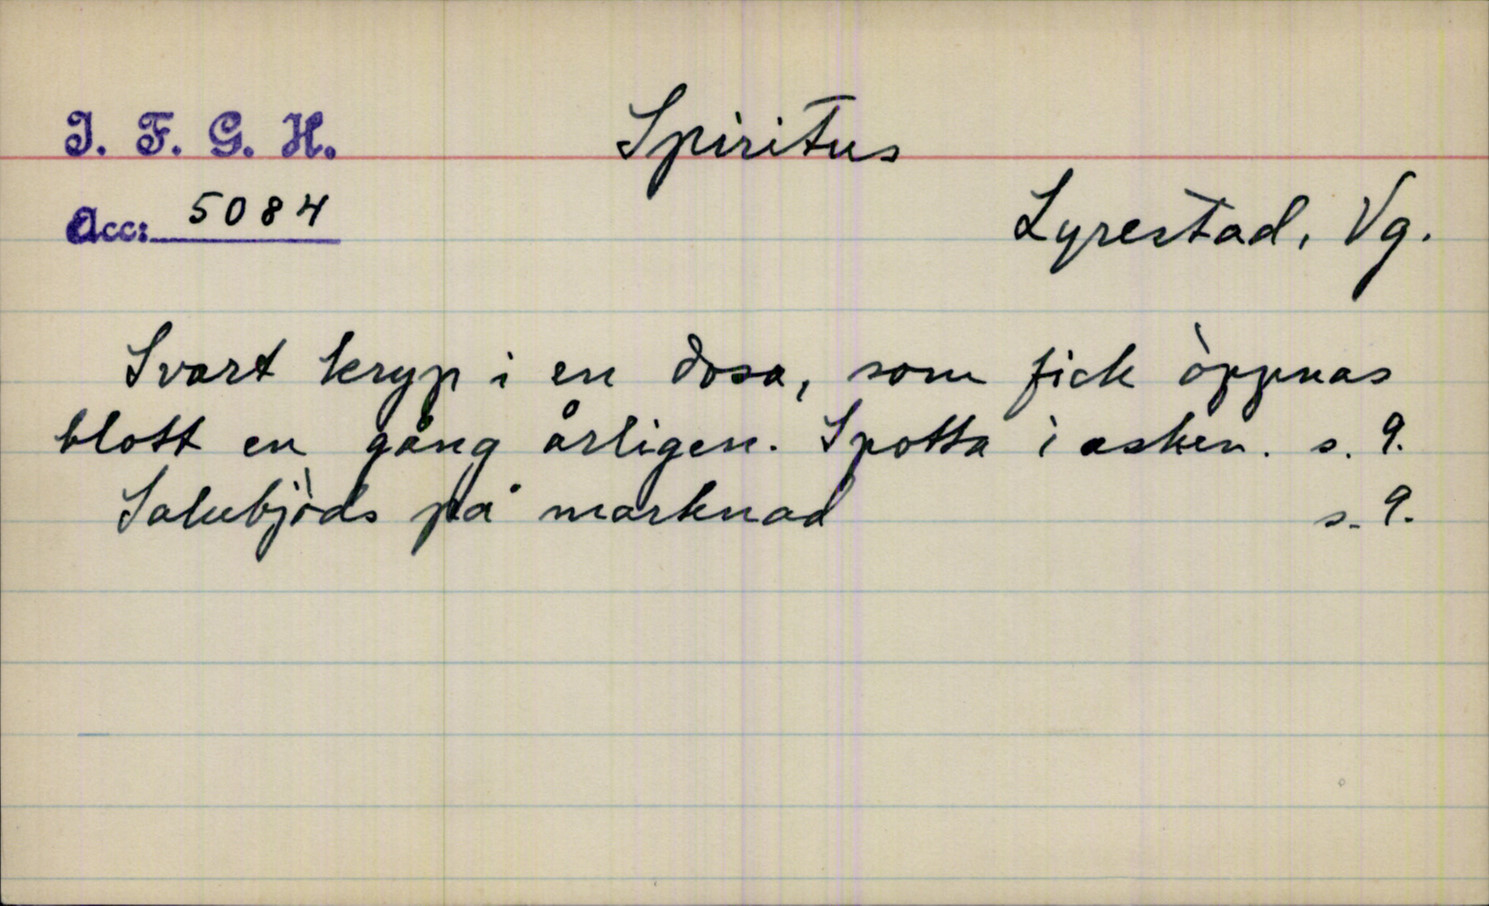 I. F. G. H.
Spiritus
Acc: 5084
Lyrestad, Vg.
Svart kryp i en dosa, som fick öppnas
blott en gång årligen. Spotta i asken. s. 9.
Salubjöds på marknad s. 9.